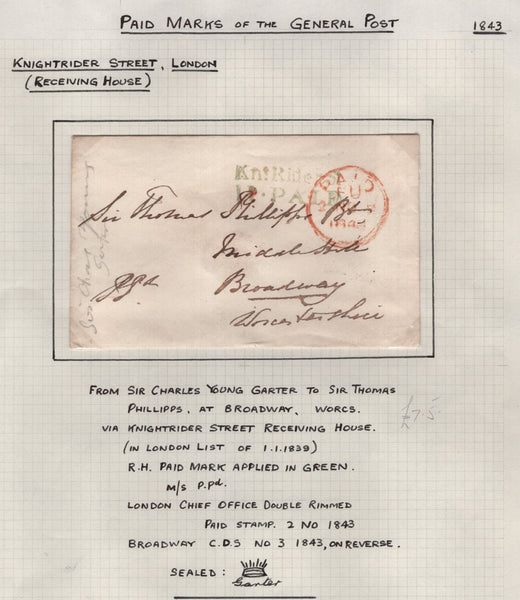 PAID MARKS OF THE GENERAL POST
1843
KNIGHTRIDER STREET, LONDON
(RECEIVING HOUSE)
KntRider
1D·PAID
PAID
1843
Sir Thomas Phillipps Bt
Middle Hill
Broadway
Worcestershire
FROM SIR CHARLES YOUNG GARTER TO SIR THOMAS
PHILLIPPS, AT BROADWAY, WORCS.
£7.5
VIA KNIGHTRIDER STREET RECEIVING HOUSE.
(IN LONDON LIST OF 1.1.1839)
R.H. PAID MARK APPLIED IN GREEN.
M/S P.Pd.
LONDON CHIEF OFFICE DOUBLE RIMMED
PAID STAMP. 2 NO 1843
BROADWAY C.D.S NO 3 1843, ON REVERSE.
SEALED:
Garter